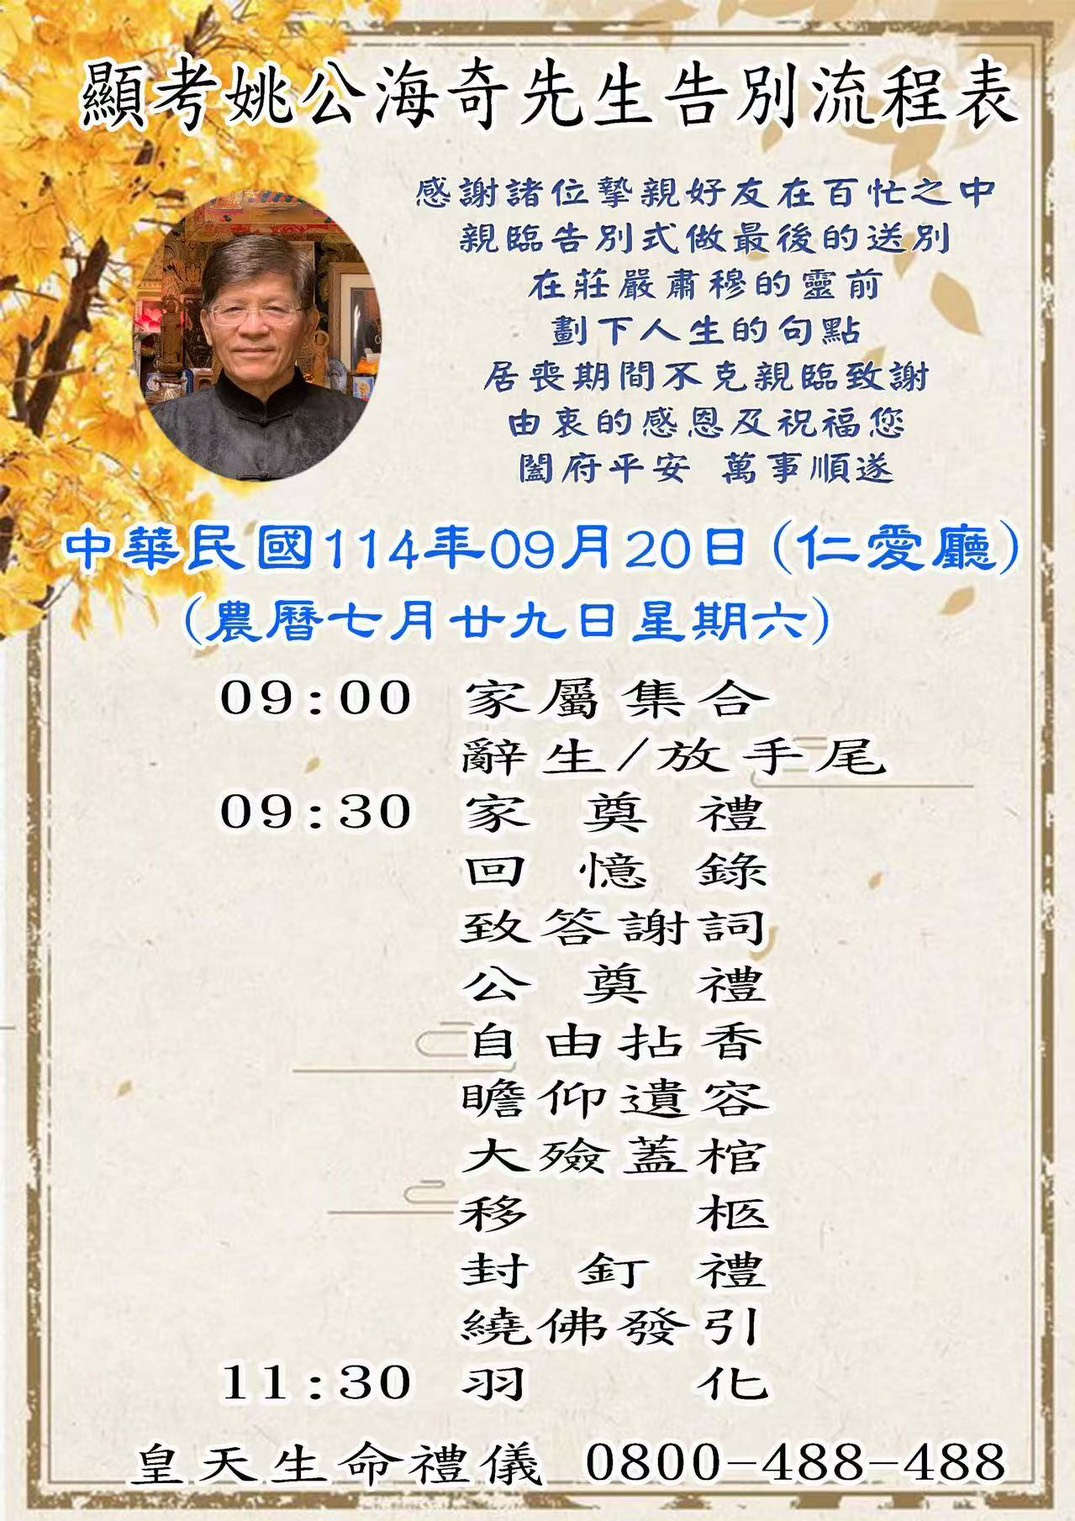 顯考姚公海奇先生告別流程表
感謝諸位摯親好友在百忙之中
親臨告別式做最後的送別
在莊嚴肅穆的靈前
劃下人生的句點
居喪期間不克親臨致謝
由衷的感恩及祝福您
闔府平安 萬事順遂
中華民國114年09月20日(仁愛廳)
(農曆七月廿九日星期六)
09:00 家屬集合
辭生/放手尾
09:30 家奠禮
回憶錄
致答謝詞
公奠禮
自由拈香
瞻仰遺容
大殮蓋棺
移柩
封釘禮
繞佛發引
11:30 羽化
皇天生命禮儀 0800-488-488